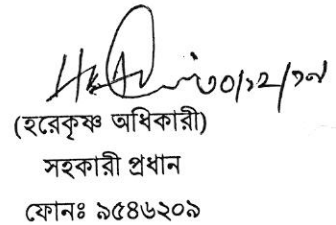 ৩০/১২/১৭
(হরেকৃষ্ণ অধিকারী)
সহকারী প্রধান
ফোনঃ ৯৫৪৬২০৯